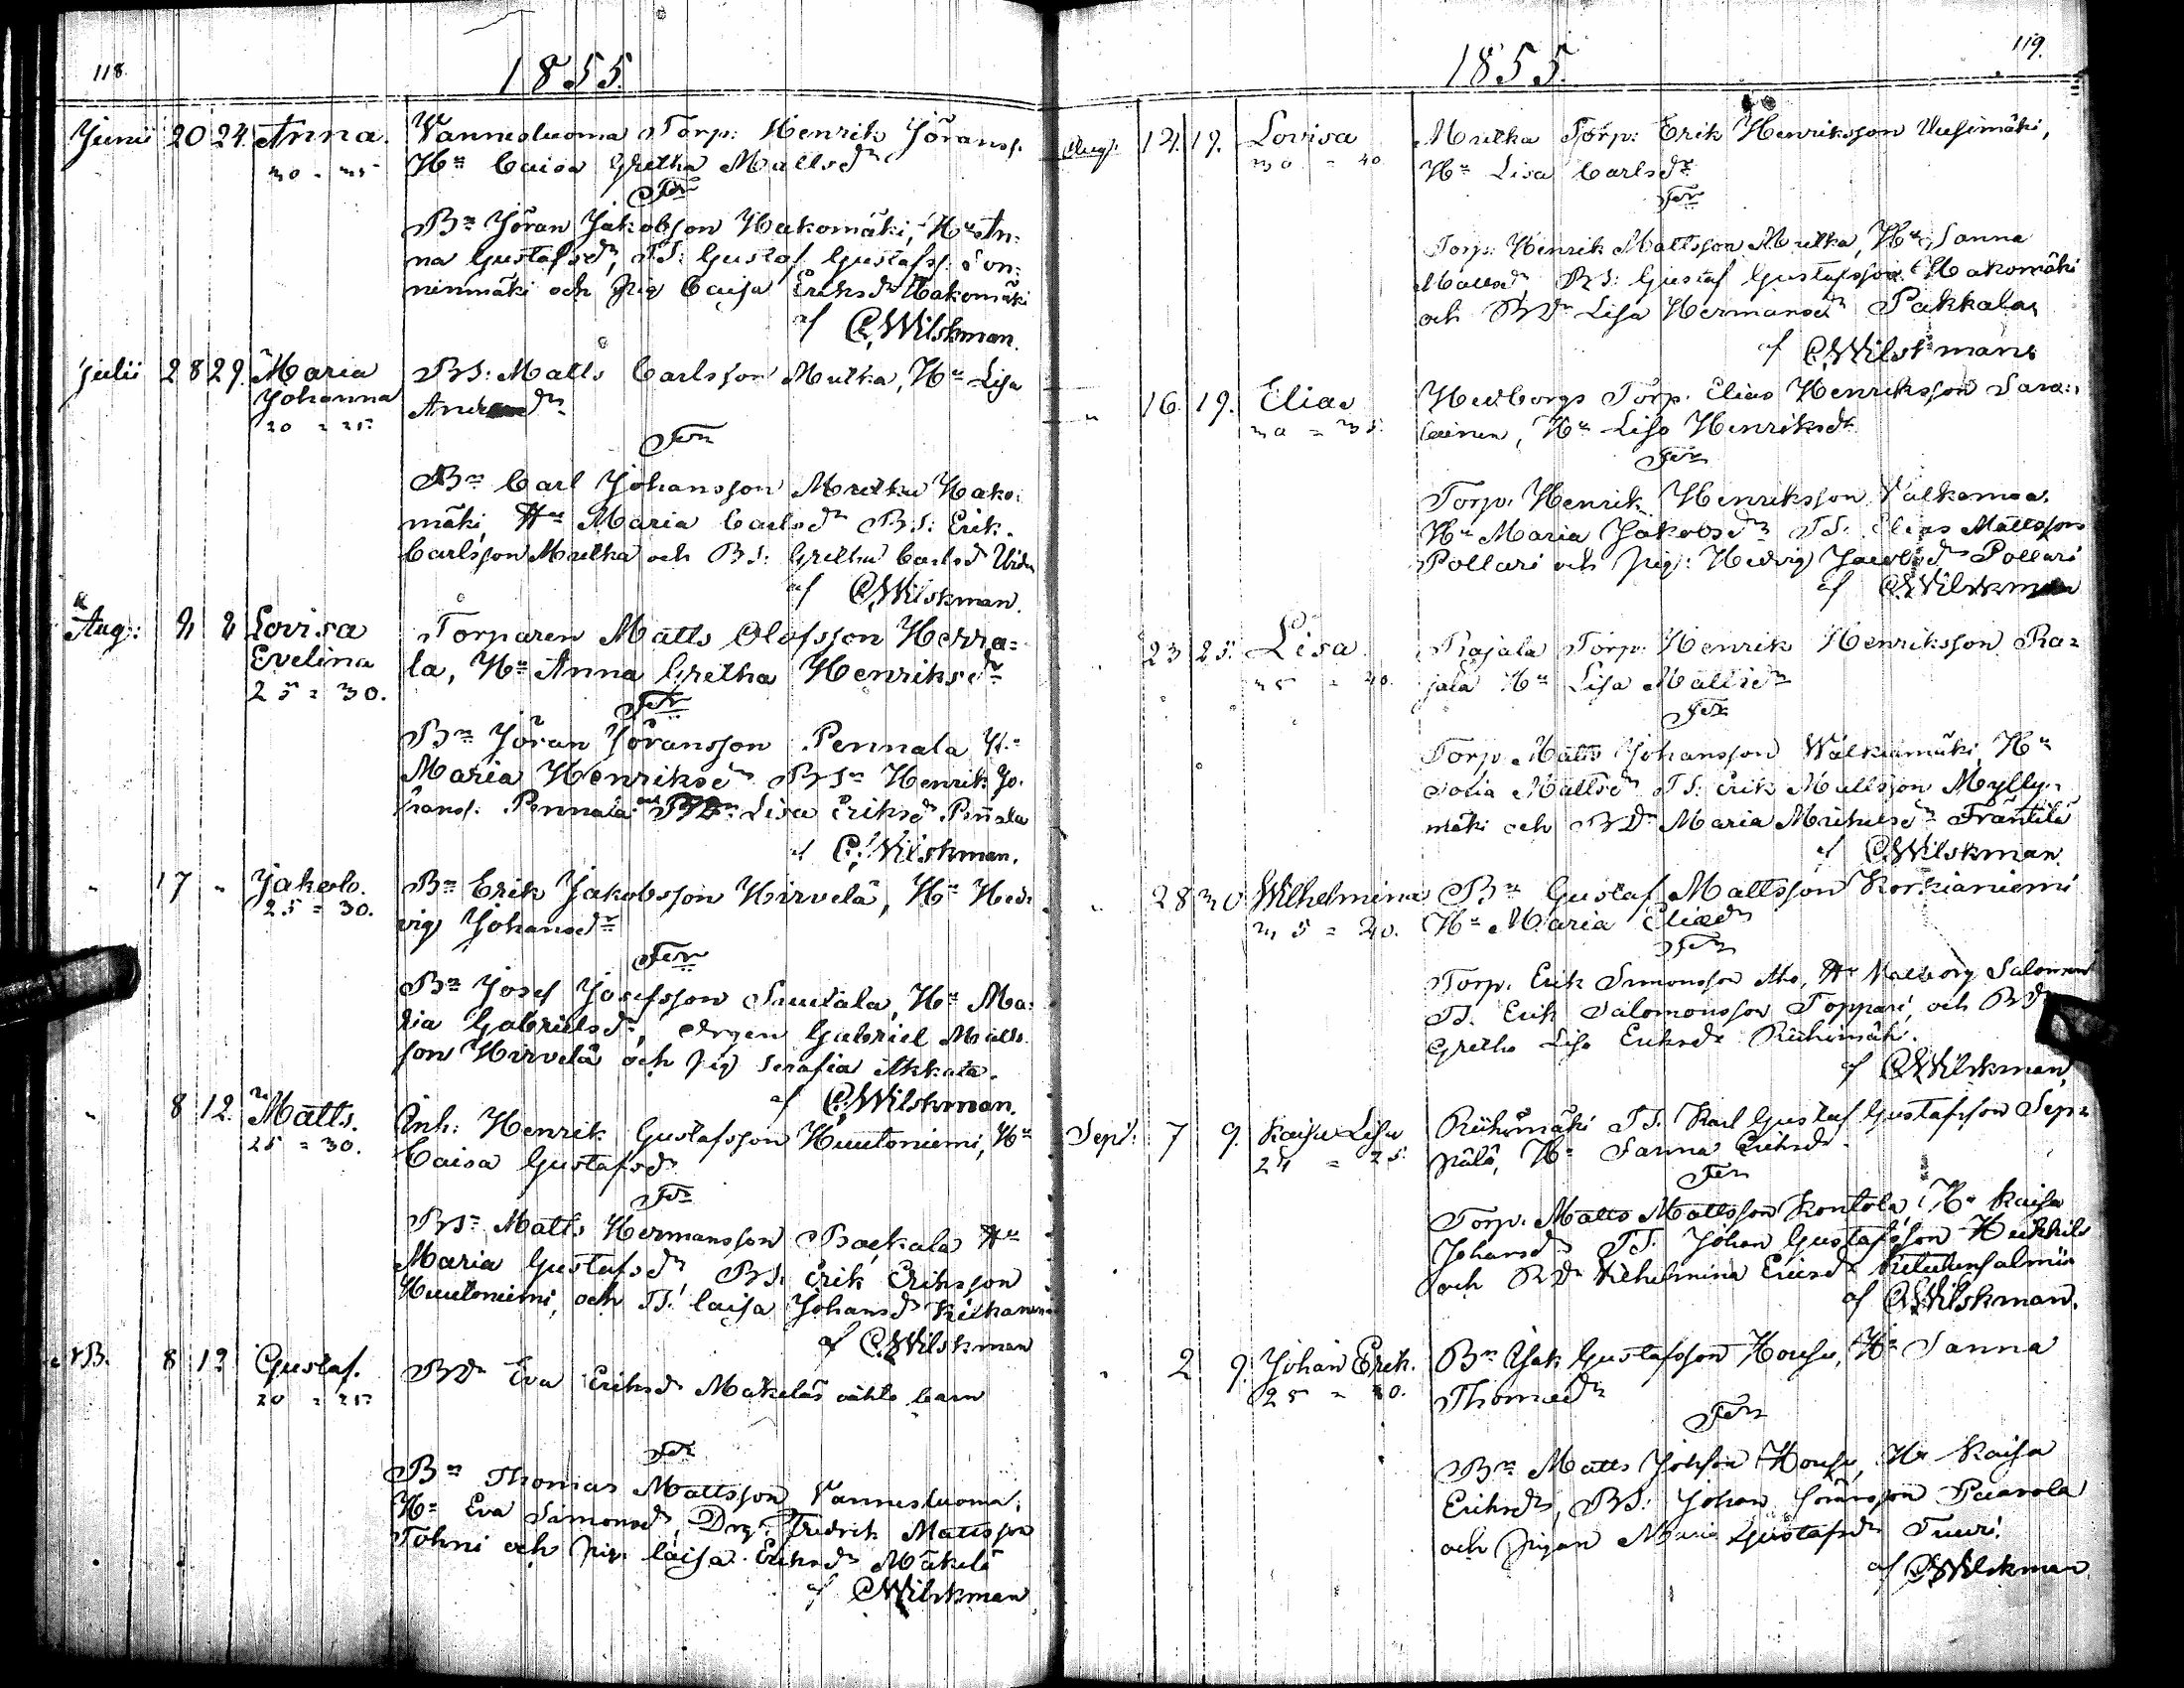 118.
1855.
Junii 20 24. Anna. Vannesluoma Torp: Henrik Jöranss.
30 - 35 Hu Caisa Gretha Mattsdr
Fr
Bn Jöran Jakobsson Hakomäki, Hu An:
na Gustafsdr, TS: Gustaf Gustafss. Son:
ninmäki och Pig Caisa Eriksdr Hakomäki
af C. Wilskman.
Julii 28 29. Maria BS: Matts Carlsson Mutka, Hu Lisa
Johanna Andersdr
20 = 25
Fr
Bn Carl Johansson Mutka Hako:
mäki, Hu Maria Carlsdr BS: Erik
Carlsson Mutka och BS: Gretha Carlsd
af C. Wilskman.
Aug: 2 Lovisa Torparen Matts Olofsson Herra=
Evelina la, Hu Anna Gretha Henriksdr
25 = 30.
Fr
Bn Jöran Jöransson Pennala H:
Maria Henriksdr BSn Henrik Jö:
ranss. Pennala och BDr Lisa Eriksdr Pennala
af C. Wilskman.
" 17 " Jakob. Bn Erik Jakobsson Hirvelä, Hu Hed:
25 = 30. vig Johansdr
Fr
Bn Josef Josefsson Suutala, Hu Ma:
ria Gabrielsdr, Drgen Gabriel Matts
son Hirvelä och Pig Serafia Akkala.
af C. Wilskman.
" 8 12. Matts. Inh: Henrik Gustafsson Huutoniemi, Hu
25 = 30. Caisa Gustafsdr
Fr
BSn Matts Hermansson Packala Hu
Maria Gustafsdr, BS: Erik Eriksson
Huutoniemi, och TS: Caisa Johansdr
af C. Wilskman
8 12 Gustaf. BDr Eva Eriksdr Mäkeläs oäkta barn
20 = 25
Fr
Bn Thomas Mattsson Vannesluoma,
Hu Eva Simonsdr, Drg: Fredrik Mattsson
Tohni och Pig: Caisa Eriksdr Mäkelä
af C. Wilskman
119.
1855.
Aug: 12. 19. Lovisa Mutka Torp: Erik Henriksson Uusimäki,
30 = 40 Hu Lisa Carlsdr
Fr
Torp: Henrik Mattsson Mutka, Hu Sanna
Mattsdr, BS: Gustaf Gustafsson Hakomäki
och BDr Lisa Hermansdr Pakkala,
af C. Wilskman
" 16. 19. Elias Hedborgs Torp. Elias Henriksson Sava:
30 = 35. lainen, Hu Lisa Henriksdr
Fr
Torp. Henrik Henriksson Valkamaa.
Hu Maria Jakobsdr TS. Elias Mattsson
Pollari och Pig: Hedvig Jacobsdr Pollari
af C. Wilskman
" 23 25. Lisa Rajala Torp: Henrik Henriksson Ra=
35 = 40. jala Hu Lisa Mattsdr
Fr
Torp Matts Johansson Walkiamäki, Hu
Sofia Mattsdr TS: Erik Mattsson Mylly:
mäki och BDr Maria Mickelsdr Fräntilä
af C. Wilskman
" 28 30 Wilhelmina Bn Gustaf Mattsson Korkianiemi
35 = 40. Hu Maria Eliædr
Fr
Torp. Erik Simonsson Aho, Hu Walborg Salomonsd
TS. Erik Salomonsson Toppari, och BDr
Gretha Lisa Eriksdr Riihimäki.
af C. Wilskman,
Sept: 7 9. Kaisa Lisa Riihimäki TS. Karl Gustaf Gustafsson Sep=
24 = 25. pälä, Hu Sanna Eriksdr
Fr
Torp. Matts Mattsson Kontola, Hu Kaisa
Johansdr TS. Johan Gustafsson Heikkilä
och BDr Wilhelmina Ericsdr
af C. Wilskman.
" 2 9. Johan Erik. Bn Isak Gustafsson Housu, Hu Sanna
25 = 30. Thomædr
Fr
Bn Matts Johsson Housu, Hu Kaisa
Eriksdr, BS: Johan Göransson Paavola
och Pigan Maria Gustafsdr Tuuri.
af C. Wilskman